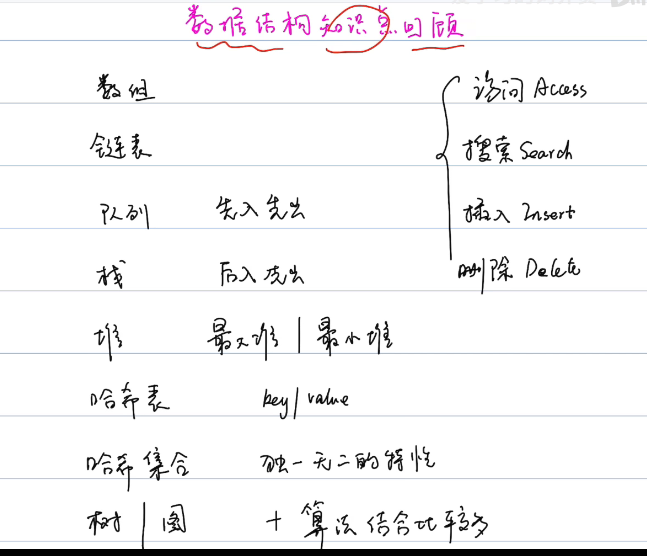 数据结构知识点回顾
数组
链表
队列 先入先出
栈 后入先出
堆 最大堆 | 最小堆
哈希表 key/value
哈希集合 独一无二的特性
树 | 图 + 算法结合比较多
访问 Access
搜索 Search
插入 Insert
删除 Delete